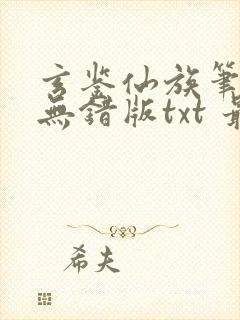 玄鉴仙族筆
無錯版txt 最
希夫